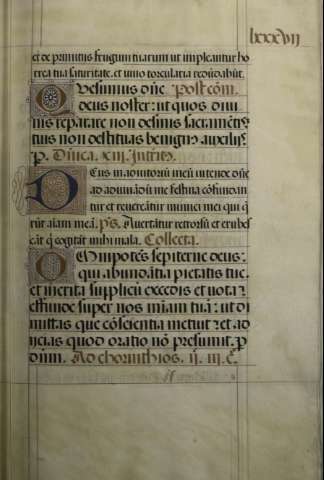 lxxxvij
et de primitiis frugum tuarum ut impleantur ho
rea tua saturitate, et uino torcularia redūdabūt.
Quesumus dñe Postcōm.
deus noster: ut quos diui
nis reparare non desinis sacramētis
tuis non destituas benignꝰ auxiliis.
p. Dñica. xii. Introitꝰ.
Deus in adiutoriū meū intende dñe
ad adiuuādū me festina cōfundan
tur et reuereātur inimici mei qui q̄
rūt aīam meā. ps. Auertātur retrorsū et erubes
cāt q̄ cogitāt mihi mala. Collecta.
Omīpotēs sempiterne deus:
qui abundātia pietatis tue
et merita supplicū excedis et uota:
effunde super nos mīam tuā: ut di
mittas que cōscientia metuit: et ad
iicias quod oratio nō presumit. p
dūm. Ad chorinthios. ii. iii. C.